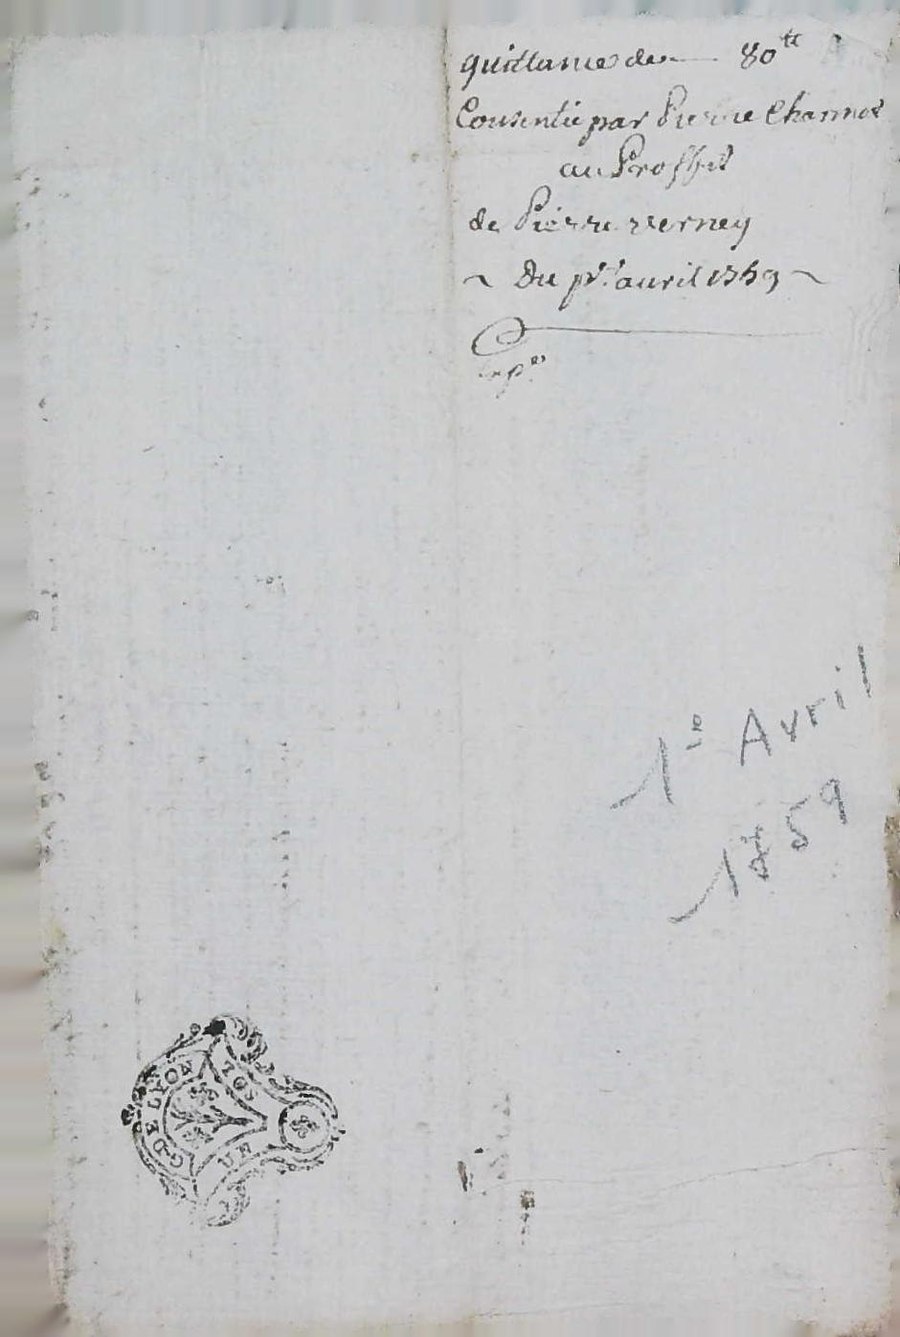 quittance de 80tt
Consentie par Pierre Charmet
au Proffit
de Pierre verney
~ Du pr. avril 1759 ~
Exp
1e Avril
1759
G. DE LYON